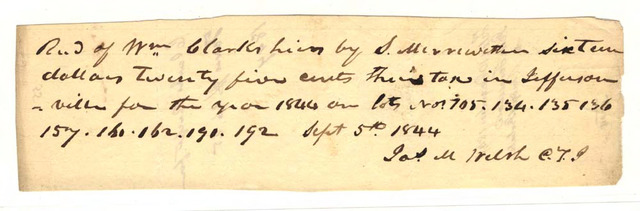 Recd of Wm Clarks heirs by S. Merriwether sixteen
dollars twenty five cents their tax in Jefferson
= ville for the year 1844 on lots Nos 105. 134. 135 136
157. 160. 162. 191. 192 Sept 5th 1844
Jas. M Welsh C.T.J